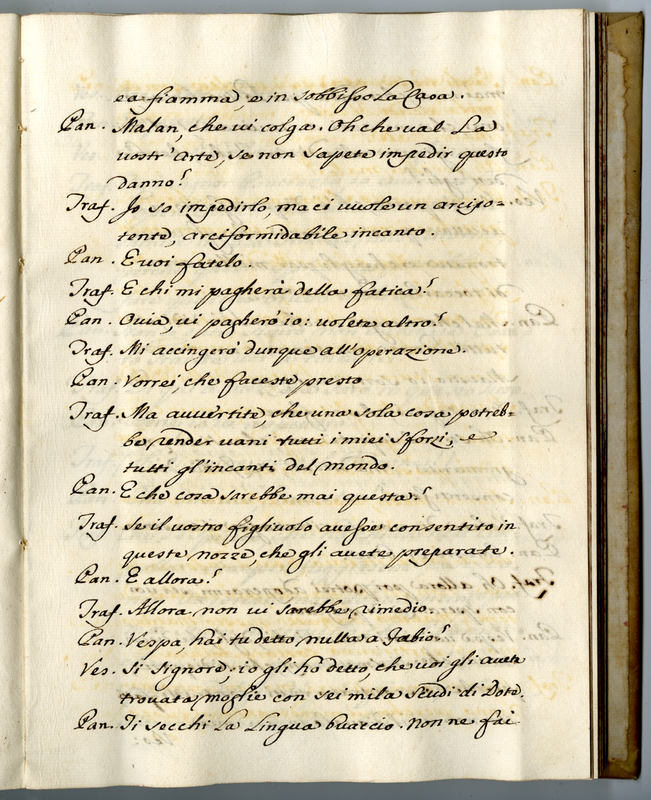 ea fiamma, e in sobbisso La Casa.
Pan. Malan, che vi colga. Oh che val La
vostr'Arte, se non sapete impedir questo
danno?
Traf. Io so impedirlo, ma ci vuole un arcipo=
tente, arciformidabile incanto.
Pan. E voi fatelo.
Traf. E chi mi pagherà della fatica?
Pan. Ovia, vi pagherò io: volete altro?
Traf. Mi accingerò dunque all'operazione.
Pan. Vorrei, che faceste presto
Traf. Ma avvertite, che una sola cosa potreb=
be render vani tutti i miei sforzi, e
tutti gl'incanti del mondo.
Pan. E che cosa sarebbe mai questa?
Traf. Se il vostro figliuolo avesse consentito in
queste nozze, che gli avete preparate.
Pan. E allora?
Traf. Allora non vi sarebbe rimedio.
Pan. Vespa, hai tu detto nulla a Fabio?
Ves. Si Signore; io gli ho detto, che voi gli avete
trovata moglie con sei mila Scudi di Dote.
Pan. Ti secchi La Lingua buaccio. Non ne fai